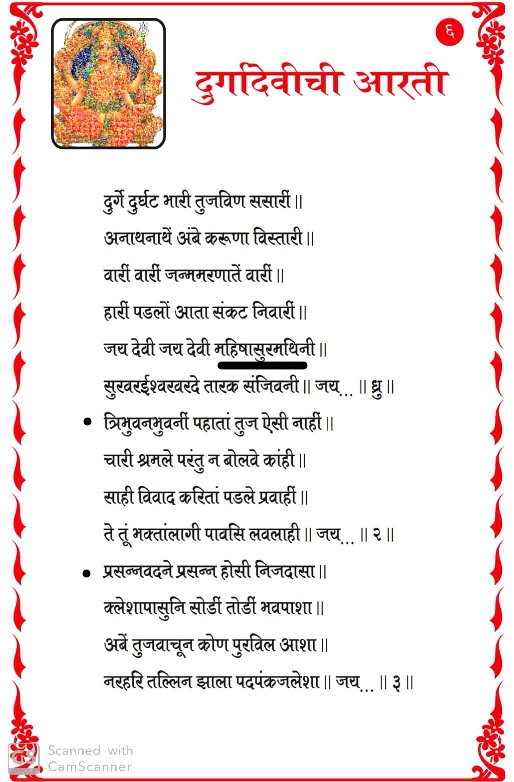 ६
दुर्गादेवीची आरती
दुर्गे दुर्घट भारी तुजविण ससारीं ||
अनाथनाथें अंबे करूणा विस्तारी ||
वारीं वारीं जन्ममरणातें वारीं ||
हारीं पडलों आता संकट निवारीं ||
जय देवी जय देवी महिषासुरमथिनी ||
सुरवरईश्वरवरदे तारक संजिवनी || जय... || ध्रु ||
त्रिभुवनभुवनीं पहातां तुज ऐसी नाहीं ||
चारी श्रमले परंतु न बोलवे कांही ||
साही विवाद करितां पडले प्रवाहीं ||
ते तूं भक्तांलागी पावसि लवलाही || जय... || २ ||
प्रसन्नवदने प्रसन्न होसी निजदासा ||
क्लेशापासुनि सोडीं तोडीं भवपाशा ||
अबें तुजवाचून कोण पुरविल आशा ||
नरहरि तल्लिन झाला पदपंकजलेशा || जय... || ३ ||
Scanned with
CamScanner